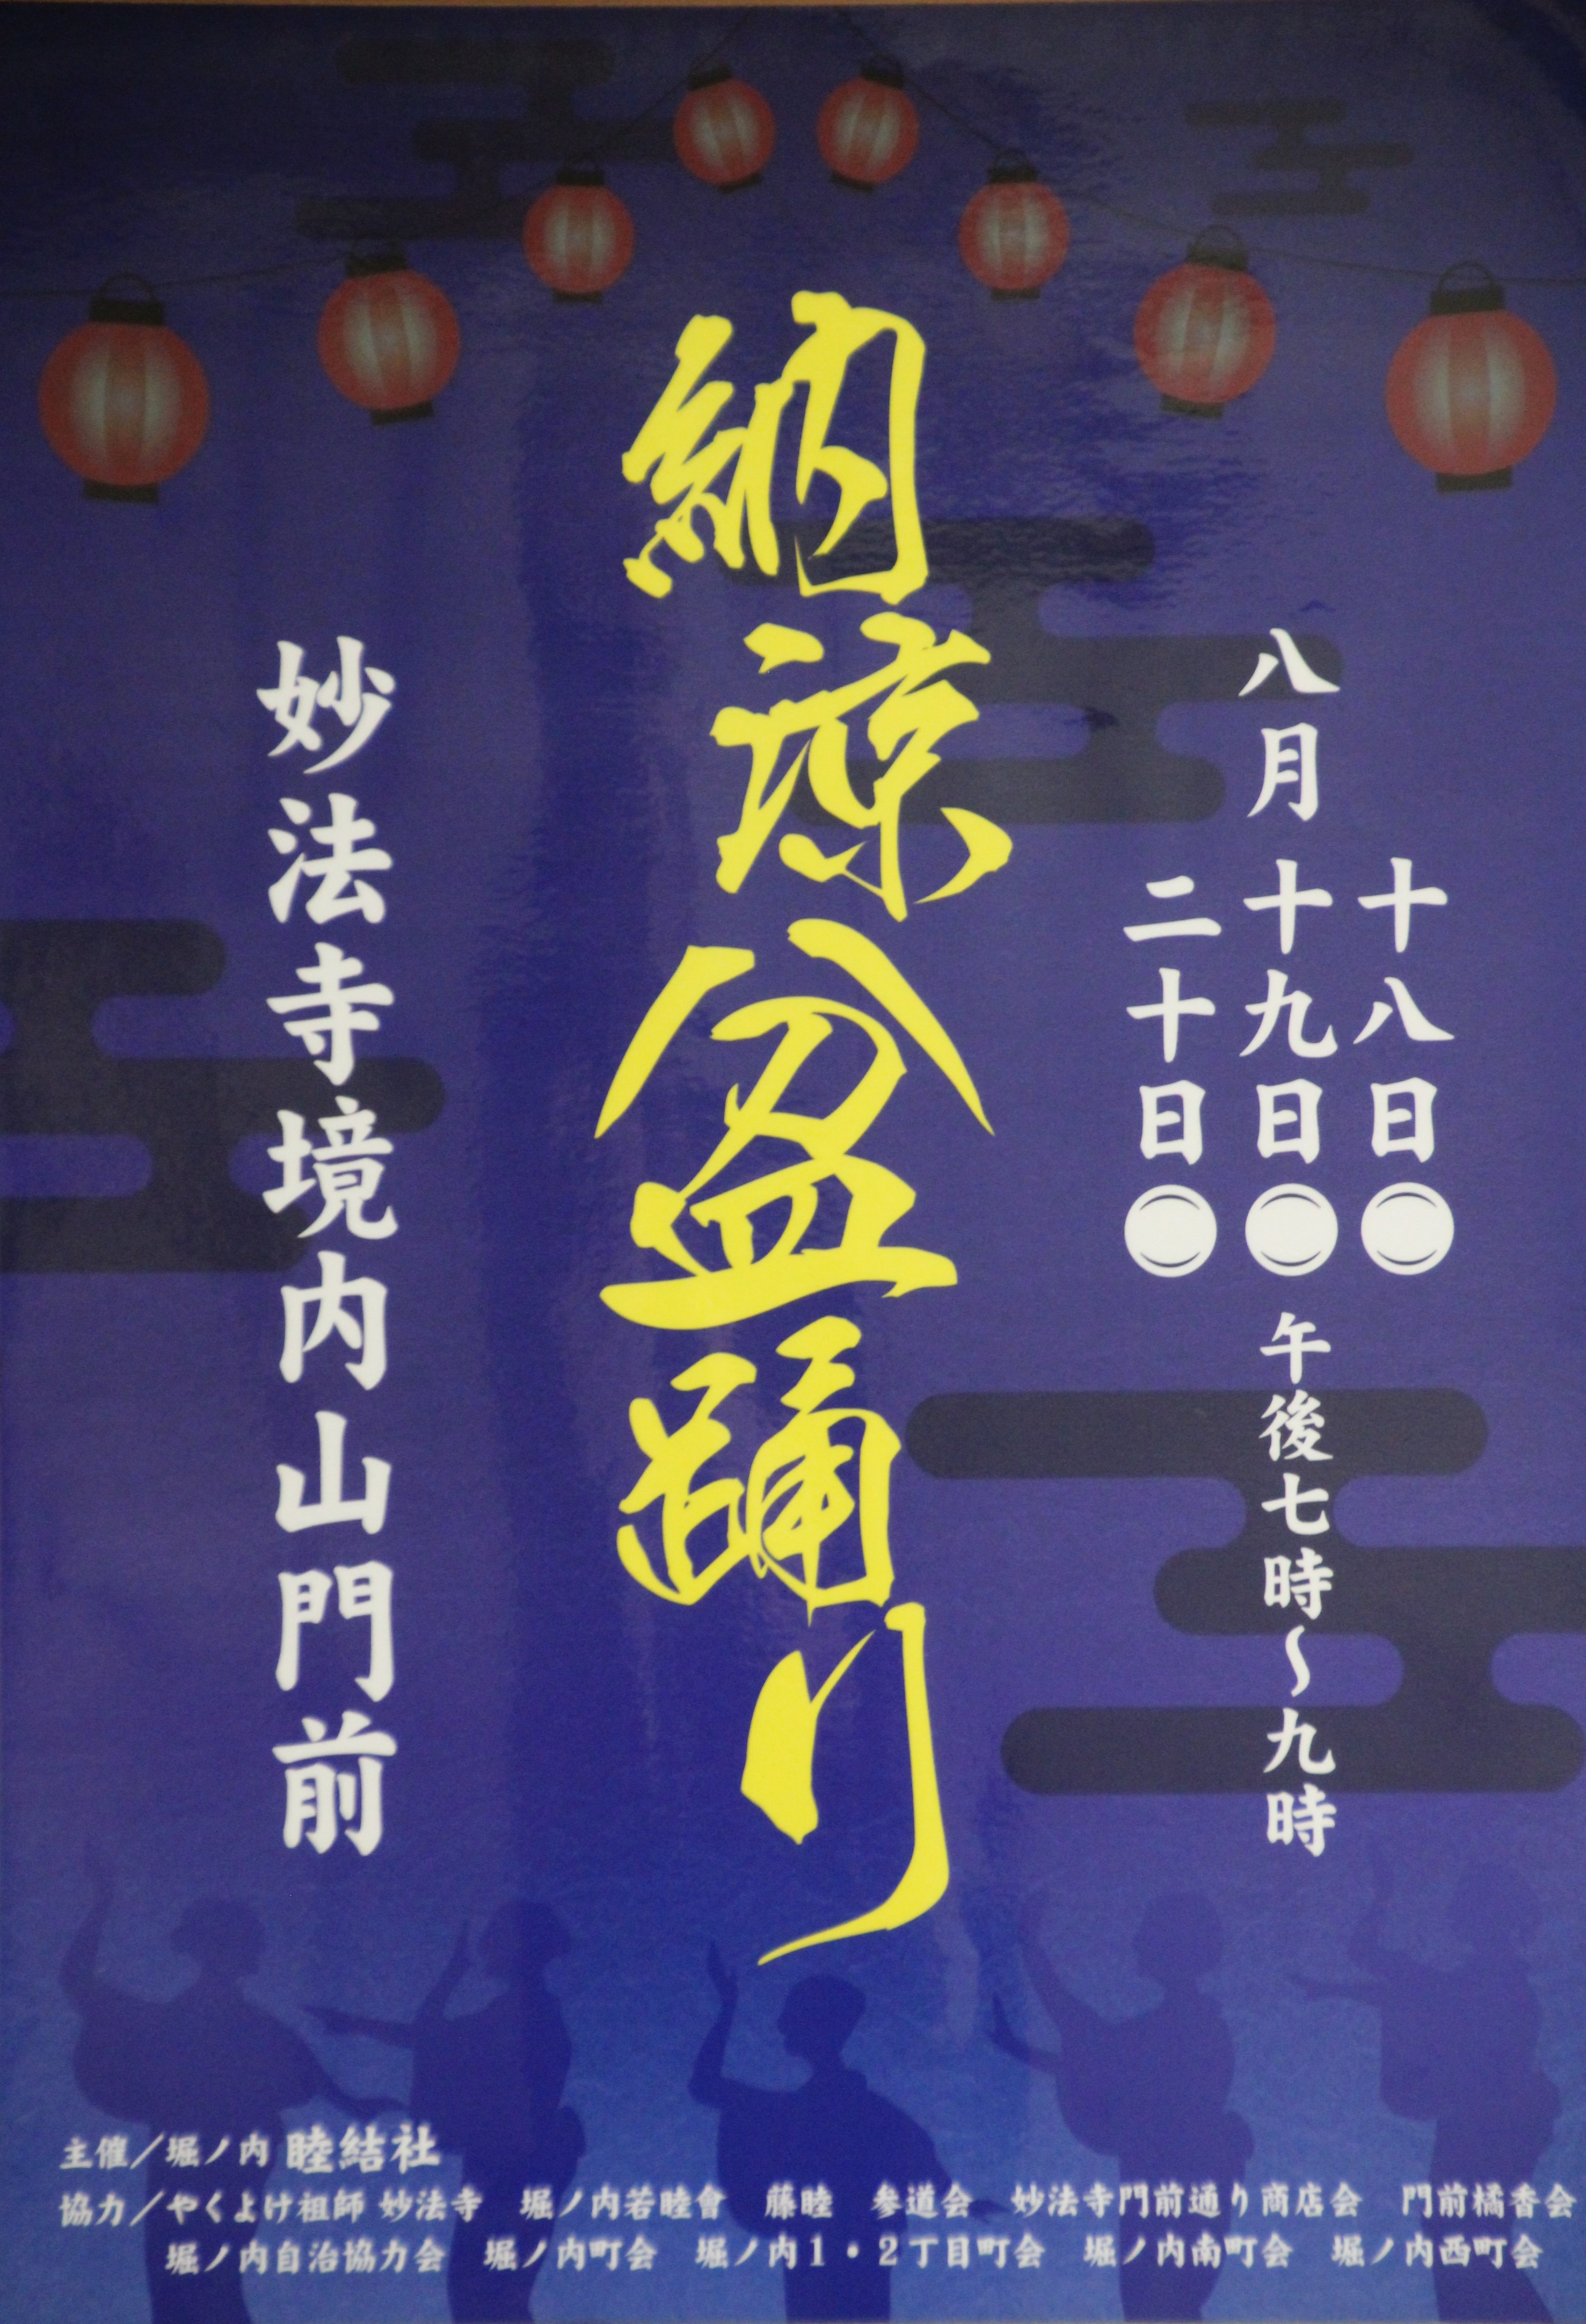 八月
十八日
十九日
二十日
午後七時〜九時
納涼盆踊り
妙法寺境内山門前
主催/堀ノ内 睦結社
協力/やくよけ祖師 妙法寺 堀ノ内若睦會 藤睦 参道会 妙法寺門前通り商店会 門前橘香会
堀ノ内自治協力会 堀ノ内町会 堀ノ内1・2丁目町会 堀ノ内南町会 堀ノ内西町会